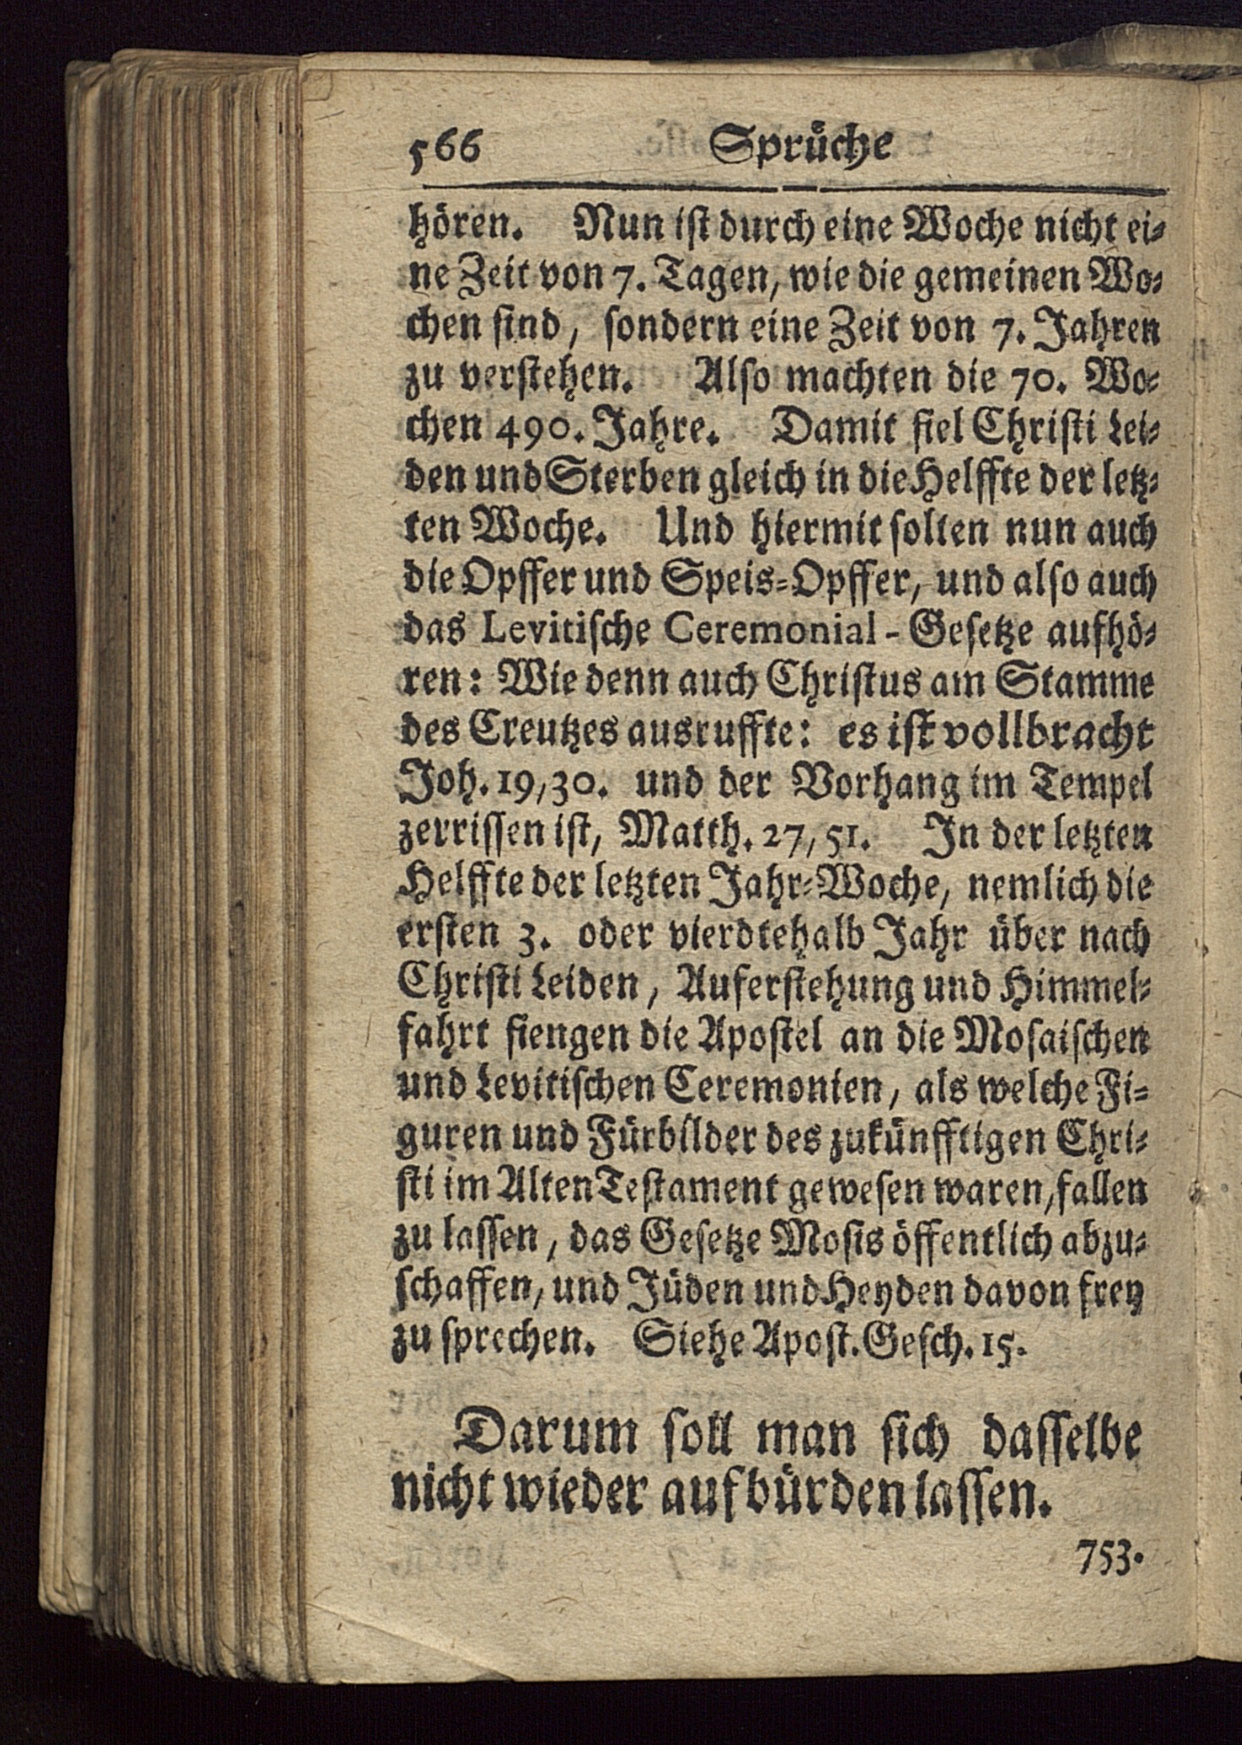 566 Sprüche
hören. Nun ist durch eine Woche nicht ei-
ne Zeit von 7. Tagen, wie die gemeinen Wo-
chen sind, sondern eine Zeit von 7. Jahren
zu verstehen. Also machten die 70. Wo-
chen 490. Jahre. Damit fiel Christi Lei-
den und Sterben gleich in die Helffte der letz-
ten Woche. Und hiermit solten nun auch
die Opffer und Speis-Opffer, und also auch
das Levitische Ceremonial-Gesetze aufhö-
ren: Wie denn auch Christus am Stamme
des Creutzes ausruffte: es ist vollbracht
Joh. 19,30. und der Vorhang im Tempel
zerrissen ist, Matth. 27,51. In der letzten
Helffte der letzten Jahr-Woche, nemlich die
ersten 3. oder vierdtehalb Jahr über nach
Christi Leiden, Auferstehung und Himmel-
fahrt fiengen die Apostel an die Mosaischen
und Levitischen Ceremonien, als welche Fi-
guren und Fürbilder des zukünfftigen Chri-
sti im Alten Testament gewesen waren, fallen
zu lassen, das Gesetze Mosis öffentlich abzu-
schaffen, und Jüden und Heyden davon frey
zu sprechen. Siehe Apost. Gesch. 15.
Darum soll man sich dasselbe
nicht wieder aufbürden lassen.
753.